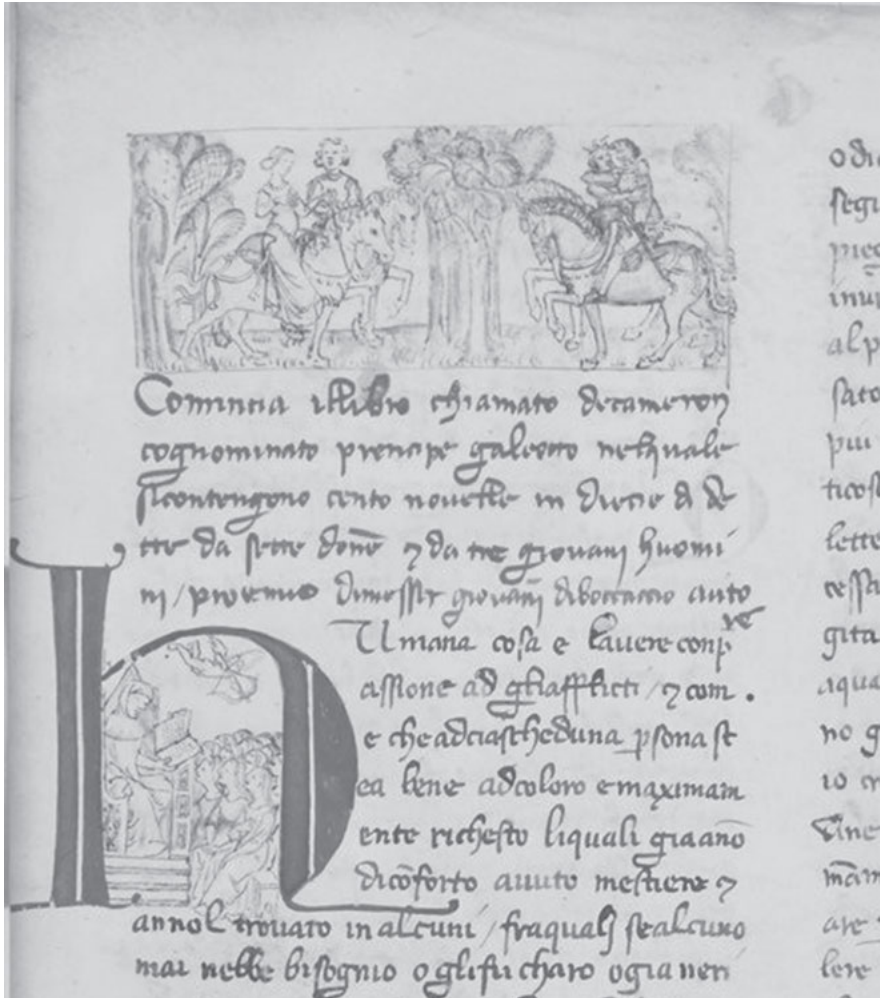 Comincia illibro chiamato decameron
cognominato prencipe galeotto nelquale
sicontengono cento novelle in diecie di de
tte da sette done ⁊ da tre giovanj huomi
nj / proemio dimesser giovanj diboccaccio auto
re
Umana cosa e lavere conp
assione ad gliafflicti / ⁊ com
e che adciascheduna psona st
ea bene adcoloro e maximam
ente richesto liquali gia ano
dicoforto avuto mestiere ⁊
annol trovato in alcuni / fraqualj sealcuno
mai nebbe bisognio o glifu charo o gia neri
odi
segu
alp
sato
piu
lette
cessa
gita
aqua
no g
io
are
lere